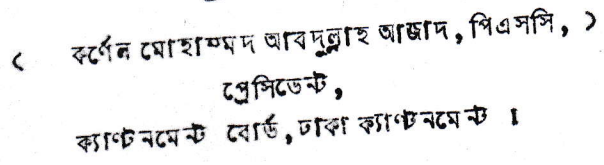 ( কর্ণেল মোহাম্মদ আবদুল্লাহ আজাদ, পিএসসি, )
প্রেসিডেন্ট,
ক্যান্টনমেন্ট বোর্ড, ঢাকা ক্যান্টনমেন্ট ।